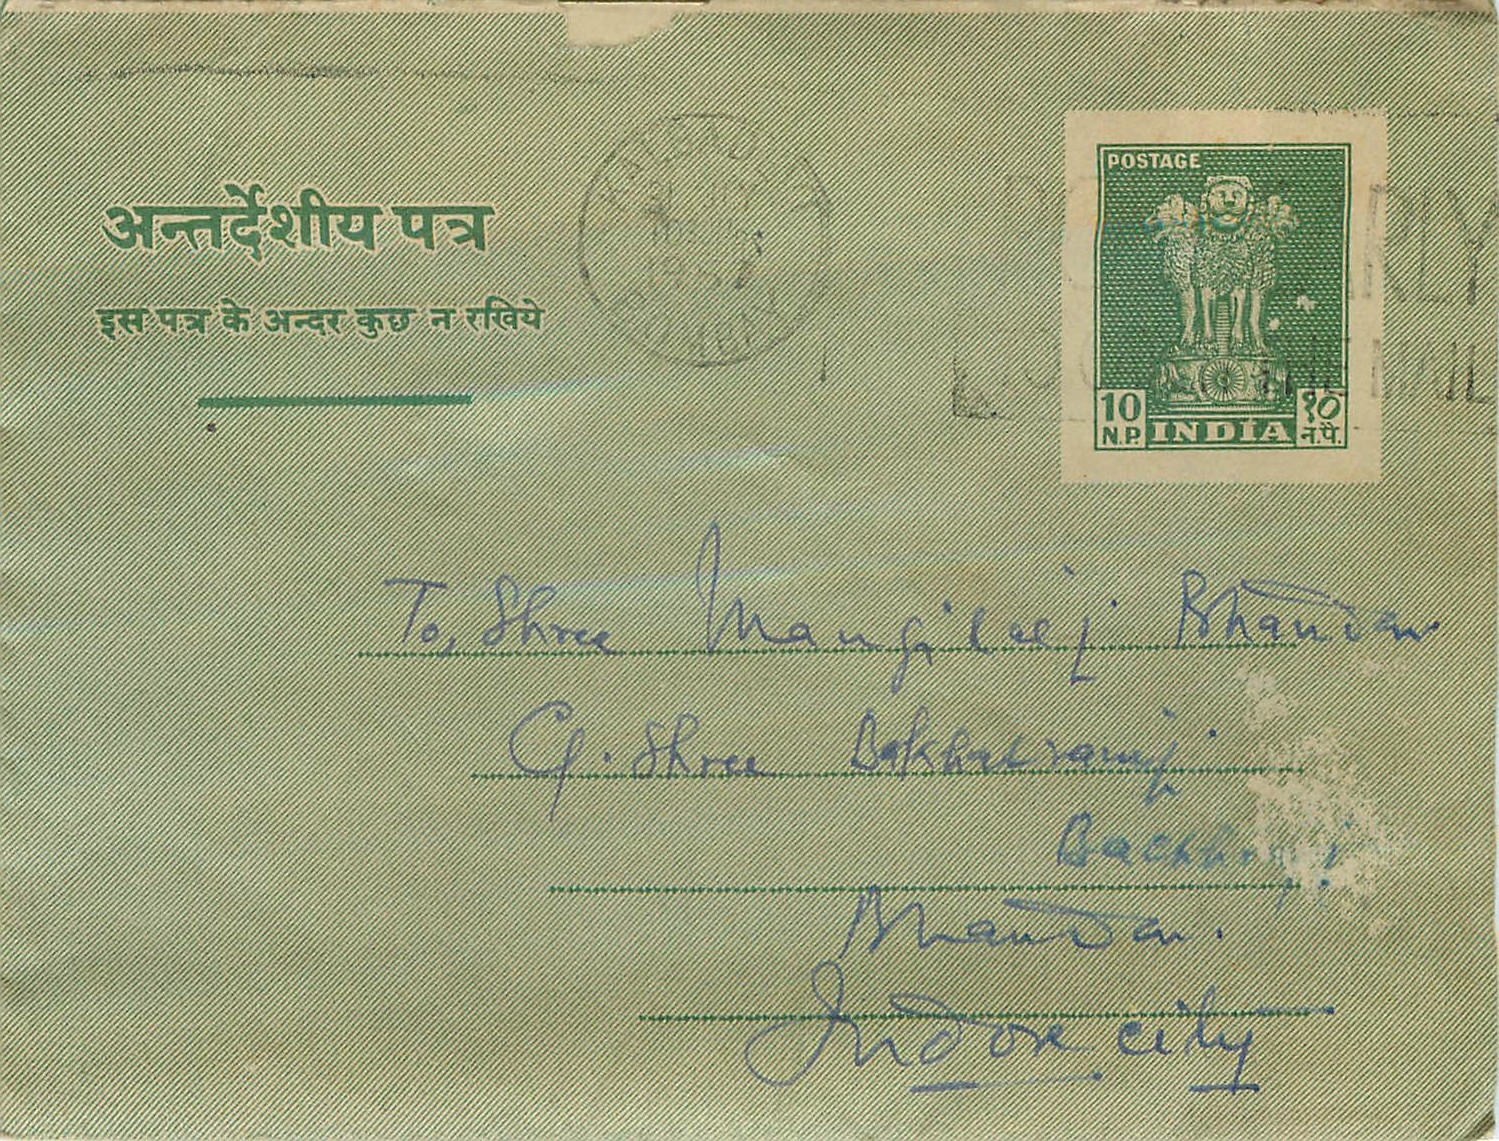 POSTAGE
अन्तर्देशीय पत्र
इस पत्र के अन्दर कुछ न रखिये
10 N.P. INDIA १० न.पै.
To, Shree Mangilalji Bhandari
C/. Shree Bakhatramji
Bhandari.
Indore City